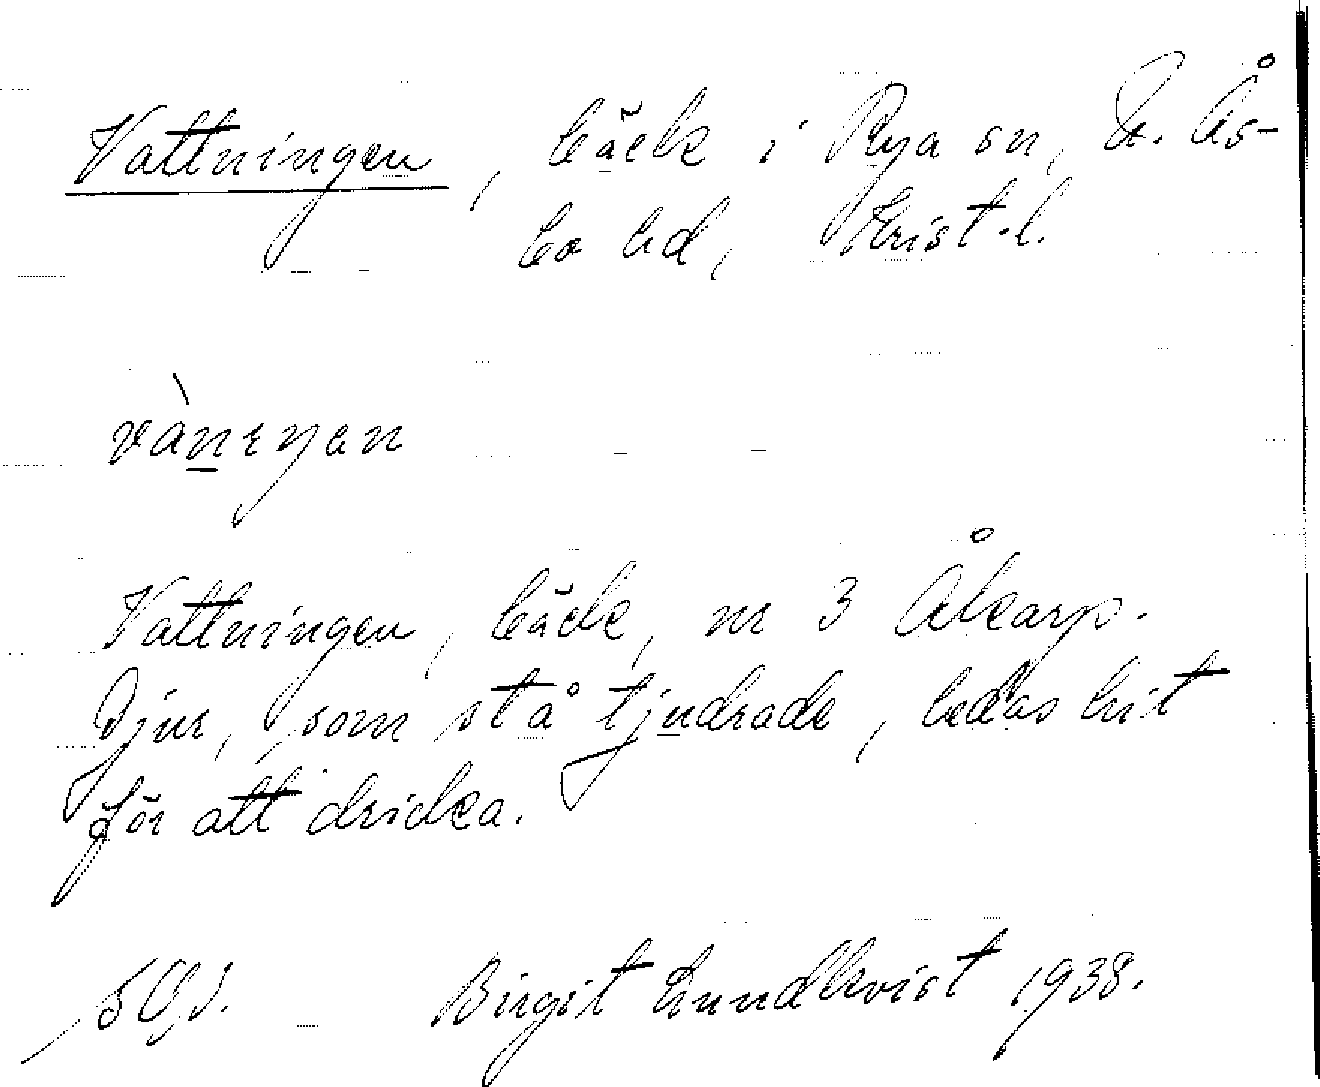 Vattningen, bäck i Rya sn, N. Ås-
bo hd, Krist.l.
vànıŋen
Vattningen, bäck, nr 3 Åkarp.
Djur, som stå tjudrade, ledas hit
för att dricka.
Birgit Lundkvist 1938.